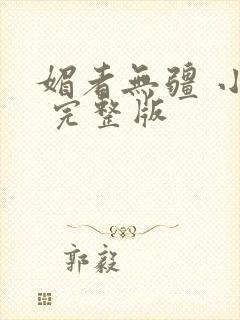 媚者無疆 小
完整版
郭毅